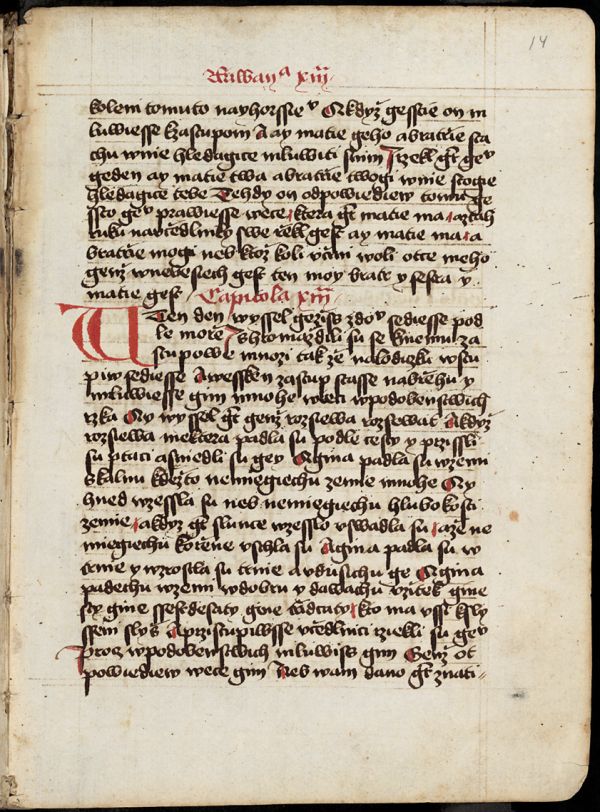 14
kolem tomuto nayhorssie A kdyz gesstie on m
luwiesse kzastupom A ay matie geho a bratrzie sta
chu wnie hledagice mluwiti snim I rzekl gt gev
geden ay matie twa a bratrzie twogi wnie stogie
hledagice tebe Tehdy on odpowiediew tomu ge
ssto gev prawiesse wece ktera gt matie ma a ztah
ruku na vczedlniky swe rzekl gest ay matie ma a
bratrzie mogi neb ktoz koli vczini woli otce meho
genz w nebesiech gest ten moy bratr y sestra y
matie gest Capitola xiij
W Ten den wyssel geziss z dov sediesse pod
le morze I shromazdili su se k niemu za
stupowe mnozi tak ze na lodiczku wstu
piw sediesse A wessken zastup stasse na brzehu y
mluwiesse gim mnohe wieci w podobenstwich
rzka Ay wyssel gt genz rozsiewa rozsiewat A kdyz
rozsiewa niektera padla su podle cesty y przissli
su ptaci a sniedli su gey A gina padla su w zemi
skalnu kdezto nemiegiechu zemie mnohe Ay
hned wzessla su neb nemiegiechu hlubokosti
zemie a kdyz gt slunce wzesslo vswadla su a ze ne
miegiechu korzene vschla su A gina padla su w
trnie y wzrostla su trnie a vdusichu ge A gina
padechu w zemi w dobru y dawachu vzitek gine
sty gine ssestdesaty gine trzidcaty kto ma vssi k sly
sseni slyss A przistupiwsse vczedlnici rziekli su gev
Procz w podobenstwich mluwiss gim Genz ot
powiediew wece gim Neb wam dano gt znati